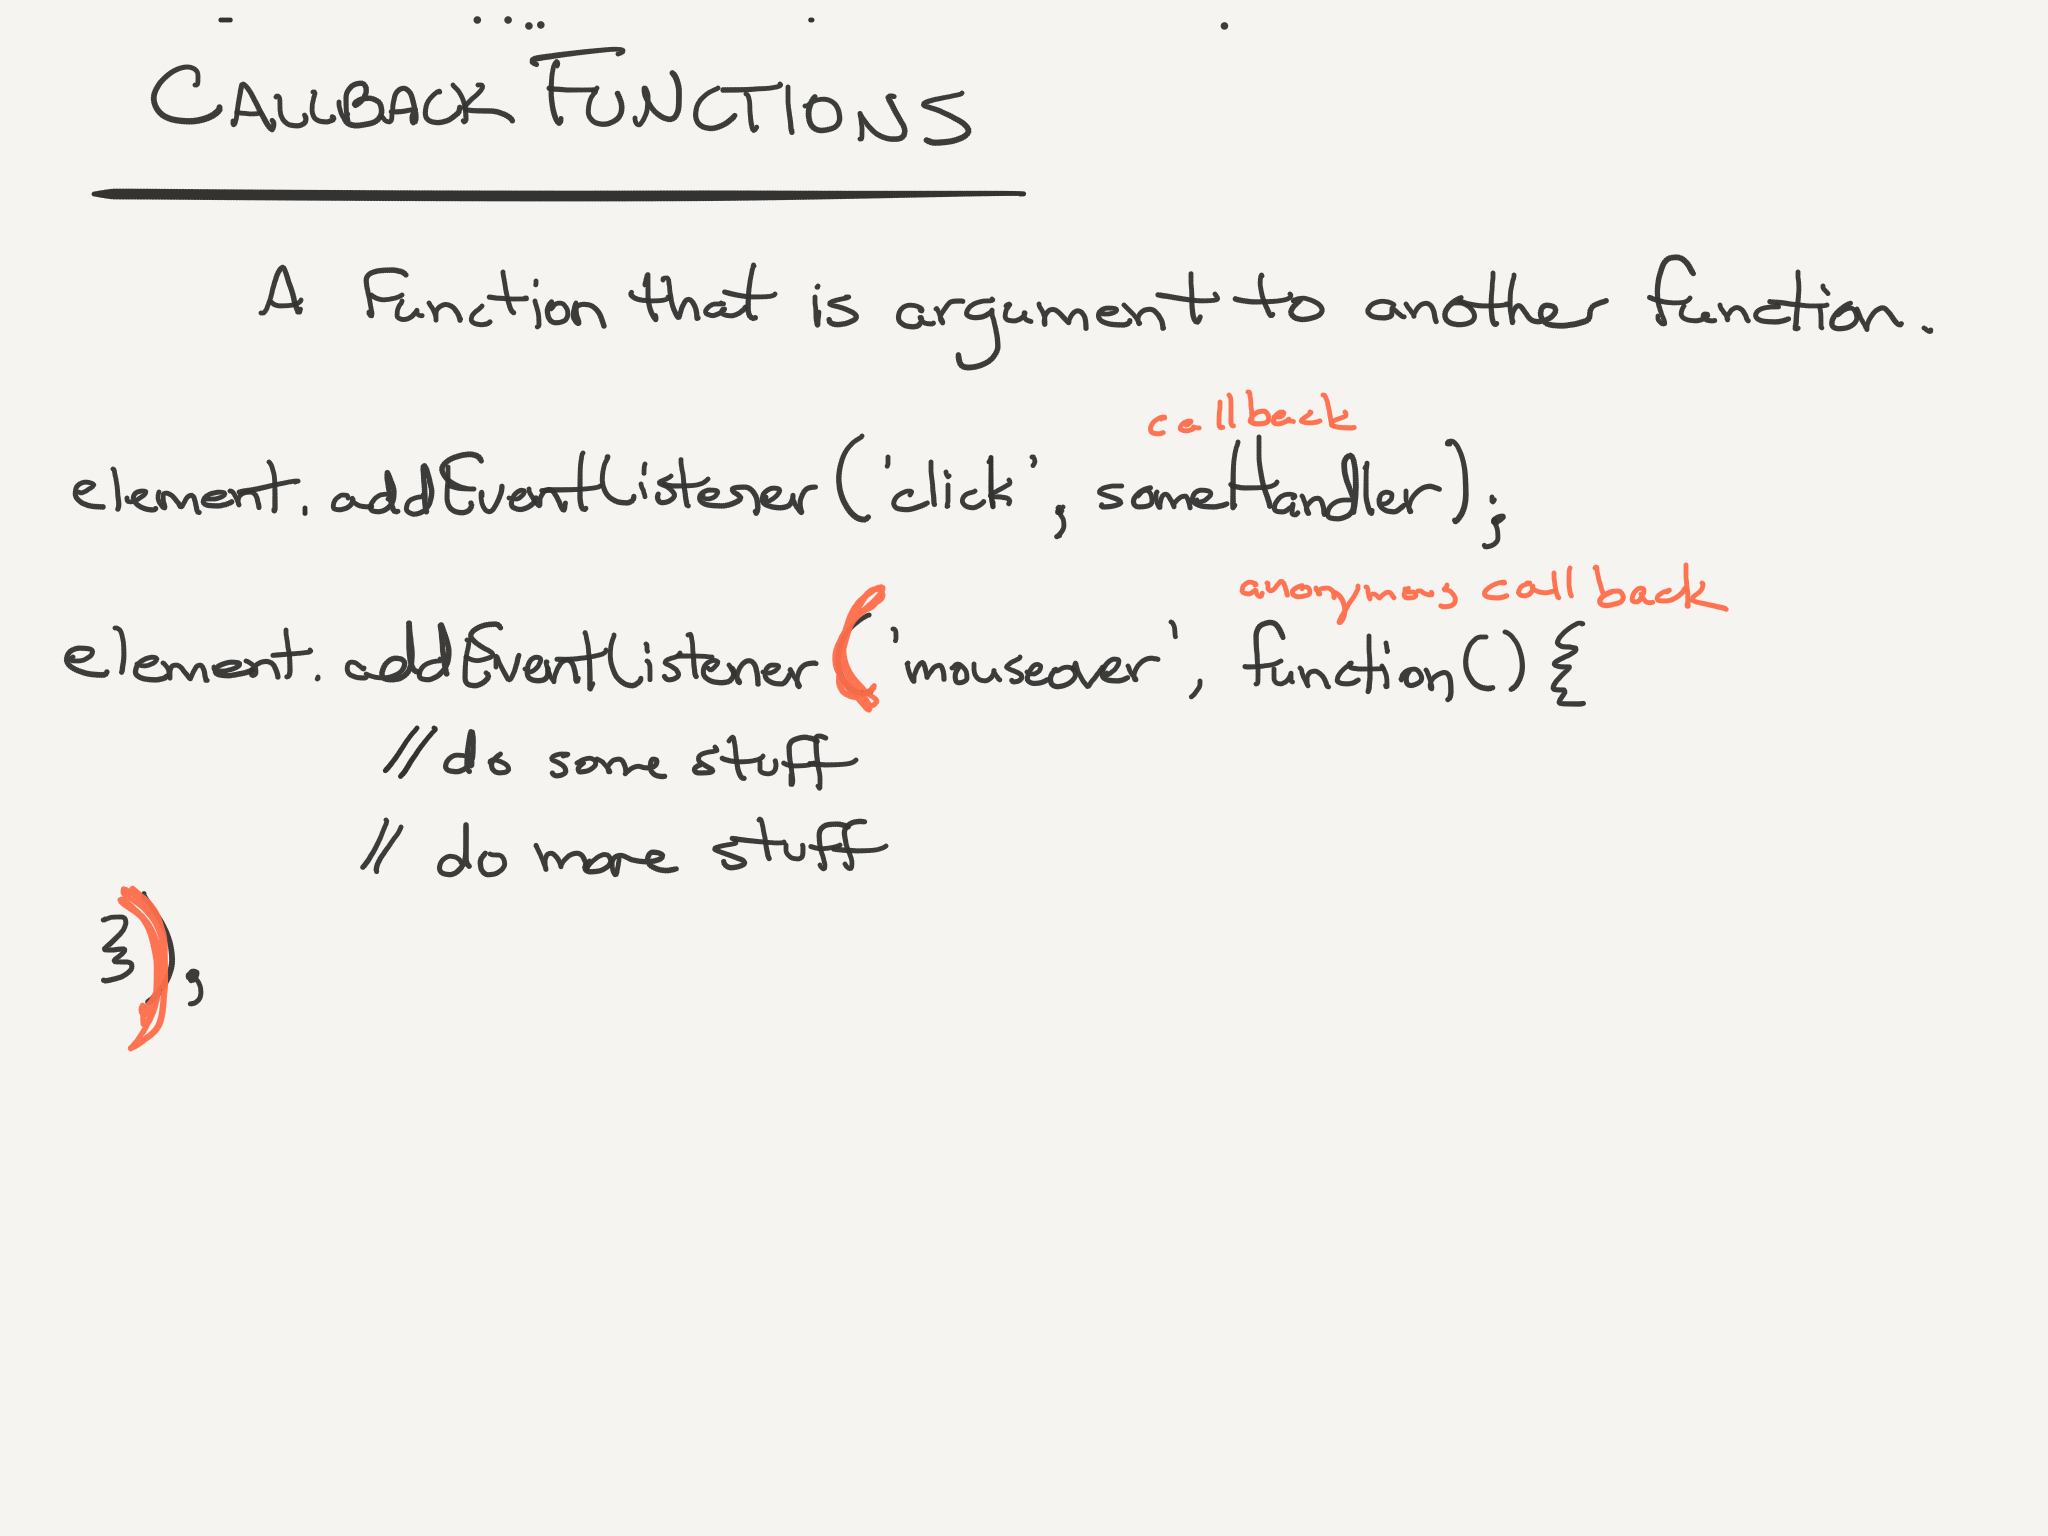 CALLBACK FUNCTIONS
A Function that is argument to another function.
callback
element.addEventListener('click', someHandler);
anonymous callback
element.addEventListener('mouseover', function(){
// do some stuff
// do more stuff
});